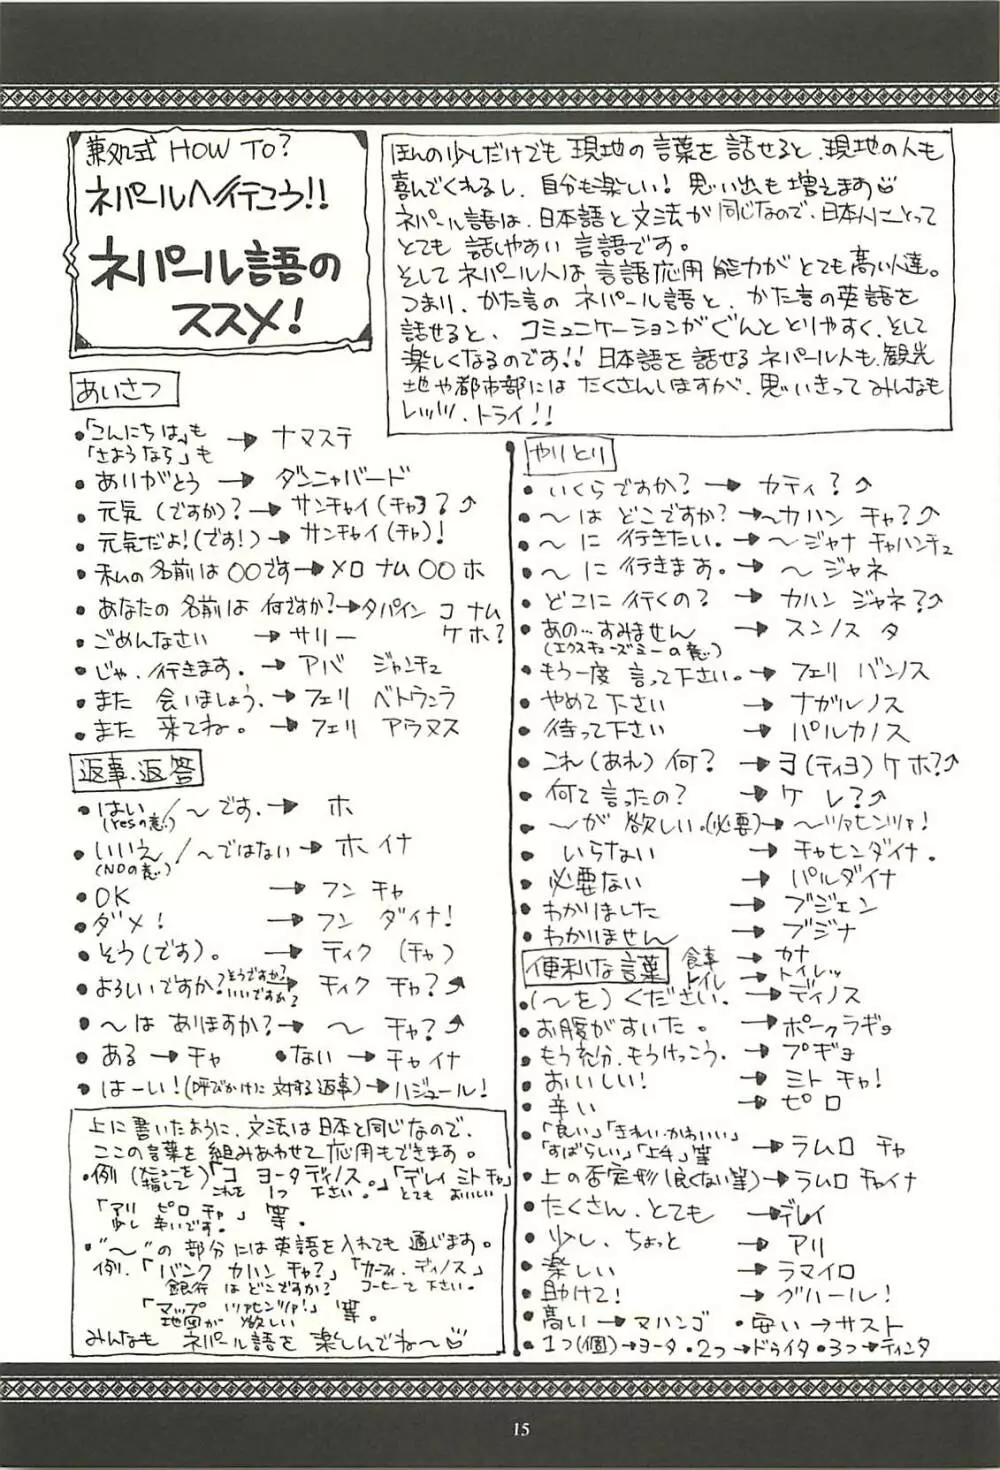 兼処式 HOW TO?
ネパールへ行こう!!
ネパール語の
ススメ!
ほんの少しだけでも現地の言葉を話せると、現地の人も
喜んでくれるし、自分も楽しい! 思い出も増えます
ネパール語は、日本語と文法が同じなので、日本人にとって
とても話しやすい言語です。
そしてネパール人は言語応用能力がとても高い人達。
つまり、かた言のネパール語と、かた言の英語を
話せると、コミュニケーションがぐんととりやすく、そして
楽しくなるのです!! 日本語を話せるネパール人も、観光
地や都市部にはたくさんいますが、思いきってみんなも
レッツ、トライ!!
あいさつ
・「こんにちは」も
「さようなら」も → ナマステ
・ありがとう → ダンニャバード
・元気(ですか)? → サンチャイ(チャ)?↗
・元気だよ!(です!) → サンチャイ(チャ)!
・私の名前は〇〇です → メロ ナム 〇〇 ホ
・あなたの名前は何ですか? → タパイン コ ナム
ケ ホ?
・ごめんなさい → サリー
・じゃ、行きます。 → アバ ジャンチュ
・また会いましょう。 → フェリ ベトウンラ
・また来てね。 → フェリ アウヌス
返事、返答
・はい。/〜です。 → ホ
(Yesの意)
・いいえ/〜ではない → ホイナ
(NOの意)
・OK → フン チャ
・ダメ! → フン ダイナ!
・そう(です)。 → ティク (チャ)
・よろしいですか? そうですか? いいですか? → ティク チャ?↗
・〜はありますか? → 〜 チャ?↗
・ある → チャ ・ない → チャイナ
・はーい!(呼びかけに対する返事) → ハジュール!
上に書いたように、文法は日本と同じなので、
ここの言葉を組みあわせて応用もできます。
・例 (メニューを指して)「コ ヨータ ディノス。」「デレイ ミト チャ」
これを 1つ 下さい。 とても おいしい
「アリ ピロ チャ」等。
少し 辛いです。
・"〜"の部分には英語を入れても通じます。
例.「バンク カハン チャ?」「カーフィ、ディノス」
銀行 は どこですか? コーヒー て 下さい。
「マップ ツァヒンツァ!」等。
地図が 欲しい
みんなも ネパール語を楽しんでね〜
やりとり
・いくらですか? → カティ?↗
・〜はどこですか? → 〜カハン チャ?↗
・〜に行きたい。 → 〜ジャナ チャハンチュ
・〜に行きます。 → 〜ジャネ
・どこに行くの? → カハン ジャネ?↗
・あの…すみません → スンノス タ
(エクスキューズミーの意)
・もう一度言って下さい。 → フェリ バンノス
・やめて下さい → ナガルノス
・待って下さい → パルカノス
・これ(あれ)何? → ヨ(ティヨ)ケ ホ?↗
・何て言ったの? → ケ レ?↗
・〜が欲しい。(必要) → 〜ツァヒンツァ!
・いらない → チャヒンダイナ。
・必要ない → パルダイナ
・わかりました → ブジェン
・わかりません → ブジナ
便利な言葉
食事 → カナ
トイレ → トイレッ
・(〜を)ください。 → ディノス
・お腹がすいた。 → ボークラギョ
・もう充分、もうけっこう。 → プギョ
・おいしい! → ミト チャ!
・辛い → ピロ
・「良い」「きれい・かわいい」
「すばらしい」「上手」等 → ラムロ チャ
・上の否定形(良くない等) → ラムロ チャイナ
・たくさん、とても → デレイ
・少し、ちょっと → アリ
・楽しい → ラマイロ
・助けて! → グハール!
・高い → マハンゴ ・安い → サスト
・1つ(個) → ヨータ ・2つ → ドゥイタ ・3つ → ティンタ
15